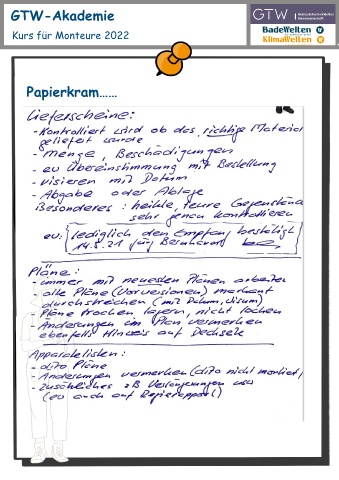 GTW-Akademie
Kurs für Monteure 2022
GTW
BadeWelten
KlimaWelten
Papierkram……
Lieferscheine:
- Kontrolliert wird ob das richtige Material
geliefert wurde
- Menge, Beschädigungen
- ev Übereinstimmung mit Bestellung
- visieren mit Datum
- Abgabe oder Ablage
Besonderes: heikle, teure Gegenstände
sehr genau kontrollieren
ev: lediglich den Empfang bestätigt
14.8.21
Pläne:
- immer mit neuesten Plänen arbeiten
alte Pläne (Vorversionen) markant
durchstreichen (mit Datum, Visum)
- Pläne trocken lagern, nicht lochen
- Änderungen im Plan vermerken
ebenfalls Hinweis auf Deckseite
Apparatelisten:
- dito Pläne
- Änderungen vermerken (dito nicht montiert)
- Zusätzliches zB Verlängerungen usw
(ev auch auf Regierapport)